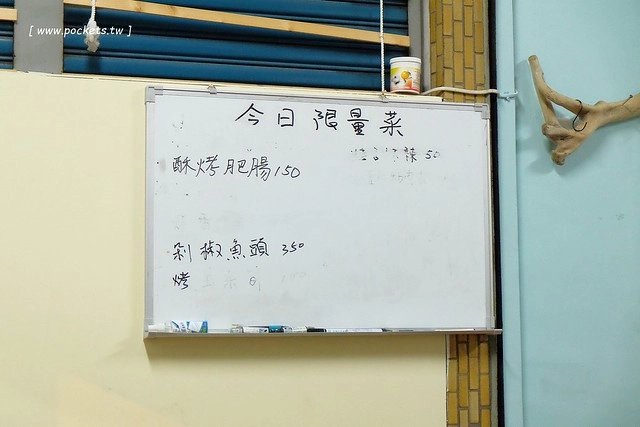 [ www.pockets.tw ]
今日限量菜
酥烤肥腸150
辣 50
剁椒魚頭 350
烤